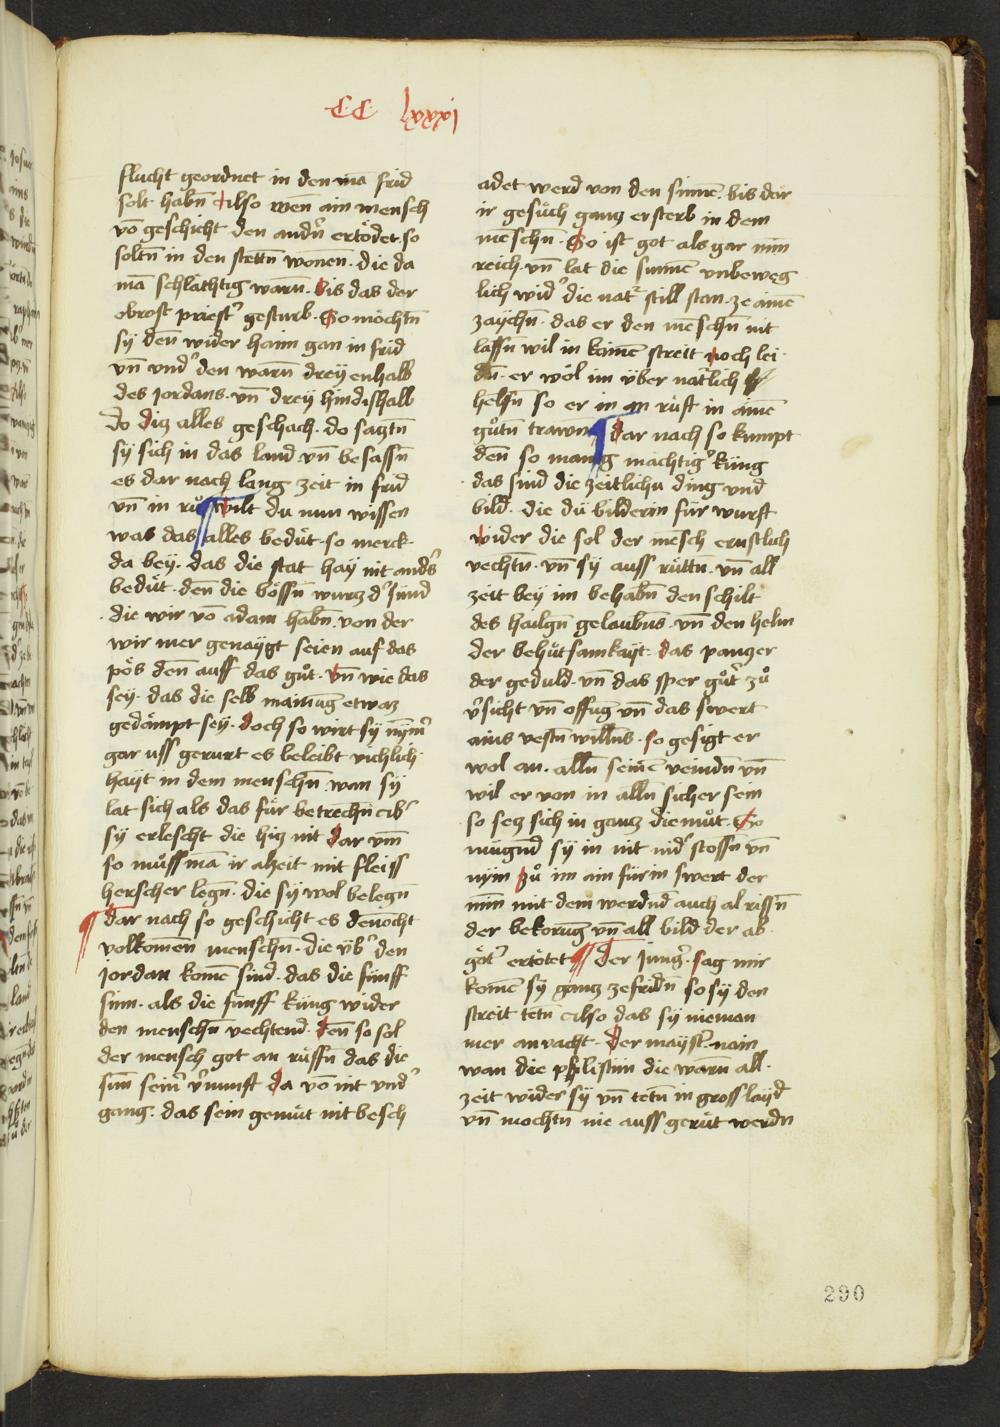 CC lxxxj
flucht geordnet in den mā frid
solt habn̄ Also wen̄ ain mensch
vō geschicht den andn̄ ertödet. so
soltn̄ in den stettn̄ wonen. die da
mā schlāchtig warn̄. Bis das der
obrost priest' gesturb. So möchtn̄
sy den̄ wider haim gan in frid
vn̄ vnd' den warn̄ dreÿ enhalb
des Jordans. vn̄ dreÿ hindishalb
Do diz alles geschach. do saztn̄
sÿ sich in das land vn̄ besassn̄
es dar nach lang zeit in frid
vn̄ in rů ¶ Wilt du nun wissen
was das alles bedüt. so merck.
da bey. das die stat hay nit and's
bedüt. den̄ die bössn̄ wurz d' sünd
die wir vō adam habn̄. von der
wir mer genaÿgt seien auf das
pös den̄ auff das gůt. Vn̄ wie das
sey. das die selb mainūg etwaz
gedämpt sey. Doch so wirt sÿ nÿm̄'
gar uss gerurt es beleibt richlich
haÿt in dem menschn̄. wan sÿ
lat sich als das für betrechn̄ Ab'
sÿ erlescht die hiz nit Dar vm̄
so můss mā ir alzeit mit fleiss
herscher legn̄. die sÿ wol belegn̄
¶ Dar nach so geschicht es denocht
volkomen̄ menschn̄. die v̈b' den
Jordan komē sind. das die fünff
sinn. als die fünff küng wider
den menschn̄ vechtend. Den̄ so sol
der mensch got an rüffn̄ das die
sun̄ sein' v'nunft da vō nit vnd'
gang. das sein gemüt nit besch
adet werd von den sinnē. bis dar
ir gesůch ganz ersterb in dem
mēschn̄. So ist got als gar min̄
reich. vn̄ lat die sunnē vnbeweg
lich wid' die nat' still stan. ze ainē
zaÿchn̄. das er den mēschn̄ nit
lassn̄ wil in kainē streit noch lei
dn̄. er wöl im v̈ber natlich
helfn̄ so er in an růft in ainē
gůtn̄ trawn̄ ¶ Dar nach so kumpt
den̄ so manig mächtig' küng
das sind die zeitlichn̄ ding vnd
bild. die dü bilderin für wurft
Wider die sol der mēsch ernstlich
vechtn̄. vn̄ sÿ auss rüttn̄. vn̄ all
zeit bey im behabn̄ den schilt
des hailgn̄ gelaubn̄s. vn̄ den helm
der behůtsamkaÿt. Das panzer
der geduld. vn̄ das sper gůt' zů
v'sicht vn̄ offnūg vn̄ das swert
ains vestn̄ willn̄s. so gesigt er
wol an. alln̄ seinē veindn̄ vn̄
wil er von in alln̄ sicher sein
so sez sich in ganz diemůt. So
mügn̄d sÿ in nit nid' stossn̄ vn̄
nÿm zů im ain fürin swert der
min̄ mit dem werdnd' auch al rissn̄
der bekorūg vn̄ all bild der ab
göt' ertötet ¶ Der Jung'. sag mir
komē sÿ ganz zefridn̄ so sÿ den
streit tetn̄ Also das sÿ nieman
mer an vacht. Der maÿst'. nain
wan die philistin̄ die warn̄ all
zeit wider sÿ vn̄ tetn̄ in gross laÿd
vn̄ mochtn̄ nie auss gerüt werdn̄
290